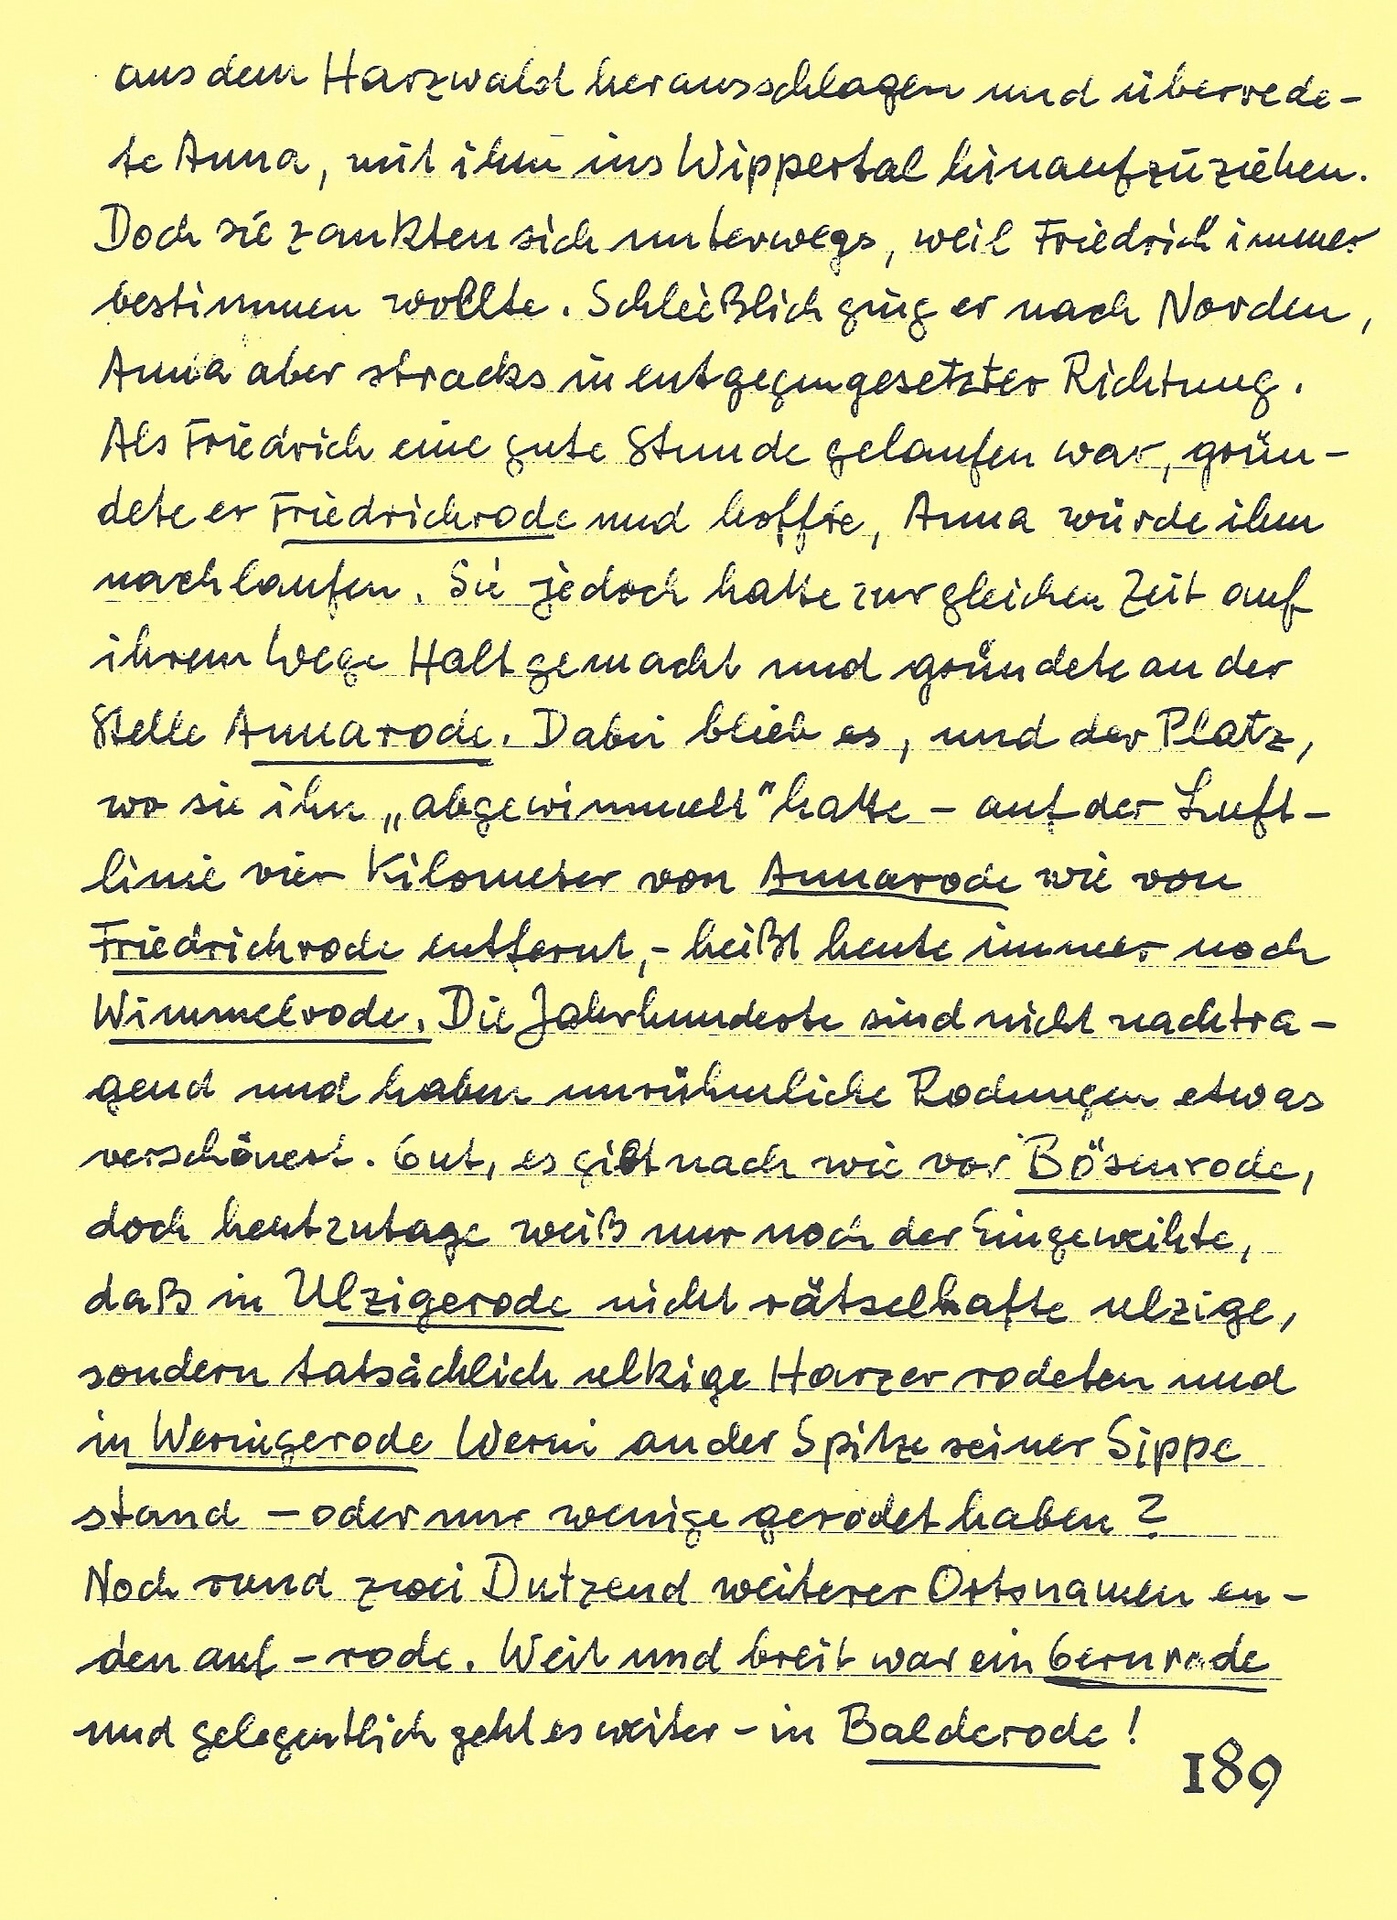 aus dem Harzwald herausschlagen und überrede-
te Anna, mit ihm ins Wippertal hinaufzuziehen.
Doch sie zankten sich unterwegs, weil Friedrich immer
bestimmen wollte. Schließlich ging er nach Norden,
Anna aber stracks in entgegengesetzter Richtung.
Als Friedrich eine gute Stunde gelaufen war, grün-
dete er Friedrichrode und hoffte, Anna würde ihm
nachlaufen. Sie jedoch hatte zur gleichen Zeit auf
ihrem Wege Halt gemacht und gründete an der
Stelle Annarode. Dabei blieb es, und der Platz,
wo sie ihn „abgewimmelt" hatte - auf der Luft-
linie vier Kilometer von Annarode wie von
Friedrichrode entfernt, - heißt heute immer noch
Wimmelrode. Die Jahrhunderte sind nicht nachtra-
gend und haben unrühmliche Rodungen etwas
verschönert. Gut, es gibt nach wie vor Bösenrode,
doch heutzutage weiß nur noch der Eingeweihte,
daß in Ulzigerode nicht rätselhafte ulzige,
sondern tatsächlich ulkige Harzer rodeten und
in Wernigerode Werni an der Spitze seiner Sippe
stand - oder nur wenige gerodet haben?
Noch rund zwei Dutzend weiterer Ortsnamen en-
den auf -rode. Weit und breit war ein Gernrode
und gelegentlich geht es weiter - in Balderode!
189